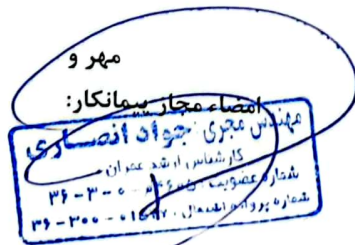 مهر و
امضاء مجاز پیمانکار:
مهندس مجری: جواد انصاری
کارشناس ارشد عمران
شماره عضویت: ۳۶-۳-۰-
شماره پروانه اشتغال: ۳۶-۳۰۰-